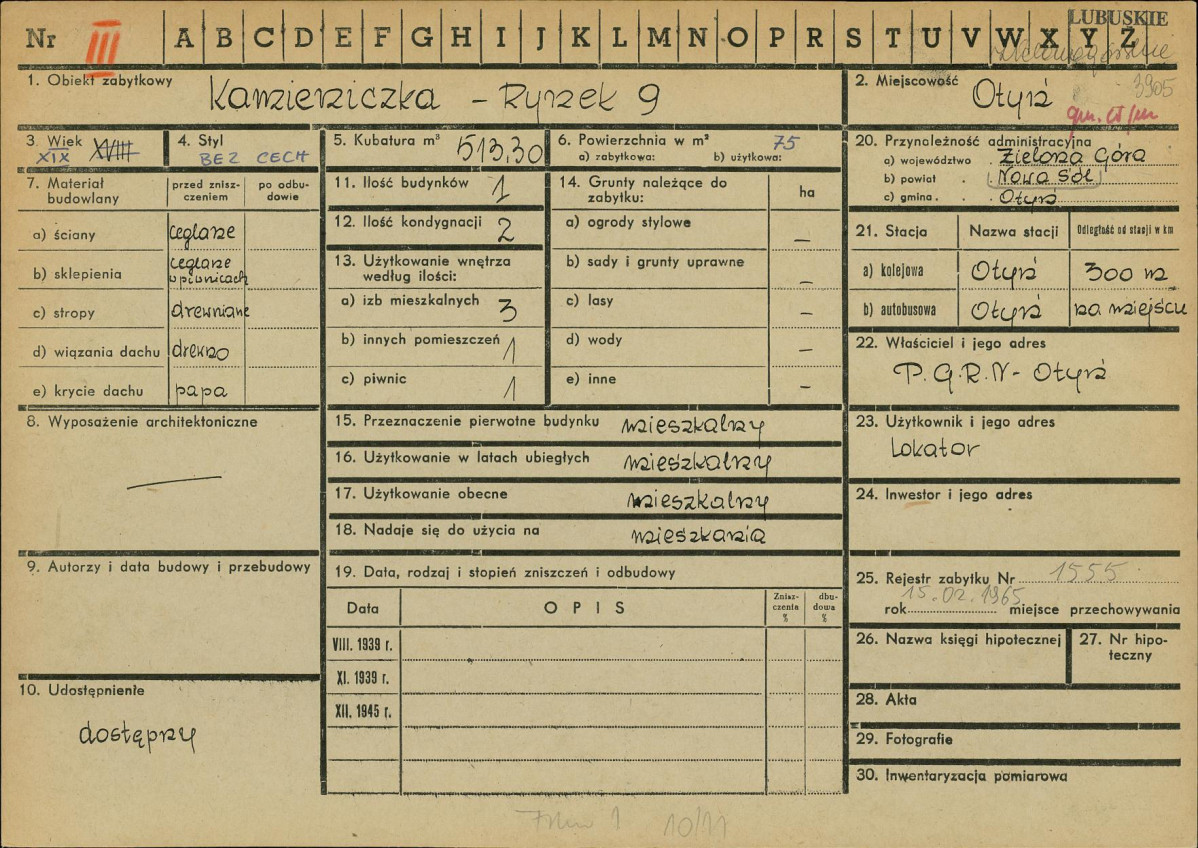 LUBUSKIE
Nr III A B C D E F G H I J K L M N O P R S T U V W X Y Ż
zielonogórskie
1. Obiekt zabytkowy
Kamieniczka - Rynek 9
2. Miejscowość
Otyń
3905
3. Wiek
XIX XVIII
4. Styl
BEZ CECH
5. Kubatura m³ 513,30
6. Powierzchnia w m² 75
a) zabytkowa: b) użytkowa:
7. Materiał budowlany
przed zniszczeniem
po odbudowie
a) ściany ceglane
b) sklepienia ceglane w piwnicach
c) stropy drewniane
d) wiązania dachu drewno
e) krycie dachu papa
8. Wyposażenie architektoniczne
—
9. Autorzy i data budowy i przebudowy
10. Udostępnienie
dostępny
11. Ilość budynków 1
12. Ilość kondygnacji 2
13. Użytkowanie wnętrza
według ilości:
a) izb mieszkalnych 3
b) innych pomieszczeń 1
c) piwnic 1
14. Grunty należące do
zabytku:
ha
a) ogrody stylowe —
b) sady i grunty uprawne —
c) lasy —
d) wody —
e) inne —
15. Przeznaczenie pierwotne budynku mieszkalny
16. Użytkowanie w latach ubiegłych mieszkalny
17. Użytkowanie obecne mieszkalny
18. Nadaje się do użycia na mieszkania
19. Data, rodzaj i stopień zniszczeń i odbudowy
Data OPIS Zniszczenia % dbudowa %
VIII. 1939 r.
XI. 1939 r.
XII. 1945 r.
20. Przynoleżność administracyjna
a) województwo Zielona Góra
b) powiat Nowa Sól
c) gmina Otyń
21. Stacja Nazwa stacji Odległość od stacji w km
a) kolejowa Otyń 300 m
b) autobusowa Otyń na miejscu
22. Właściciel i jego adres
P.G.R.N - Otyń
23. Użytkownik i jego adres
Lokator
24. Inwestor i jego adres
25. Rejestr zabytku Nr 1555
rok 15.02.1965 miejsce przechowywania
26. Nazwa księgi hipotecznej
27. Nr hipoteczny
28. Akta
29. Fotografie
30. Inwentaryzacja pomiarowa
10/11